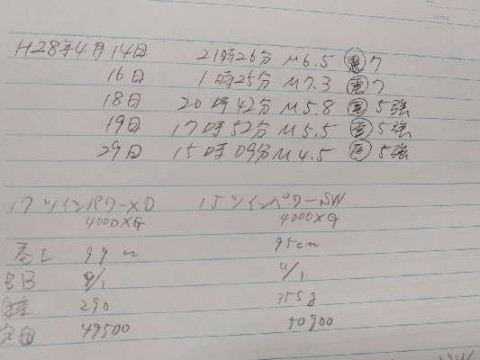 H28年4月14日 21時26分 M6.5 震7
16日 1時25分 M7.3 震7
18日 20時42分 M5.8 震5強
19日 17時52分 M5.5 震5強
29日 15時09分 M4.5 震5強
17ツインパワーXD 15ツインパワーSW
4000XG 4000XG
99cm 95cm
BB 9/1 11/1
290 355g
定価 49500 50900